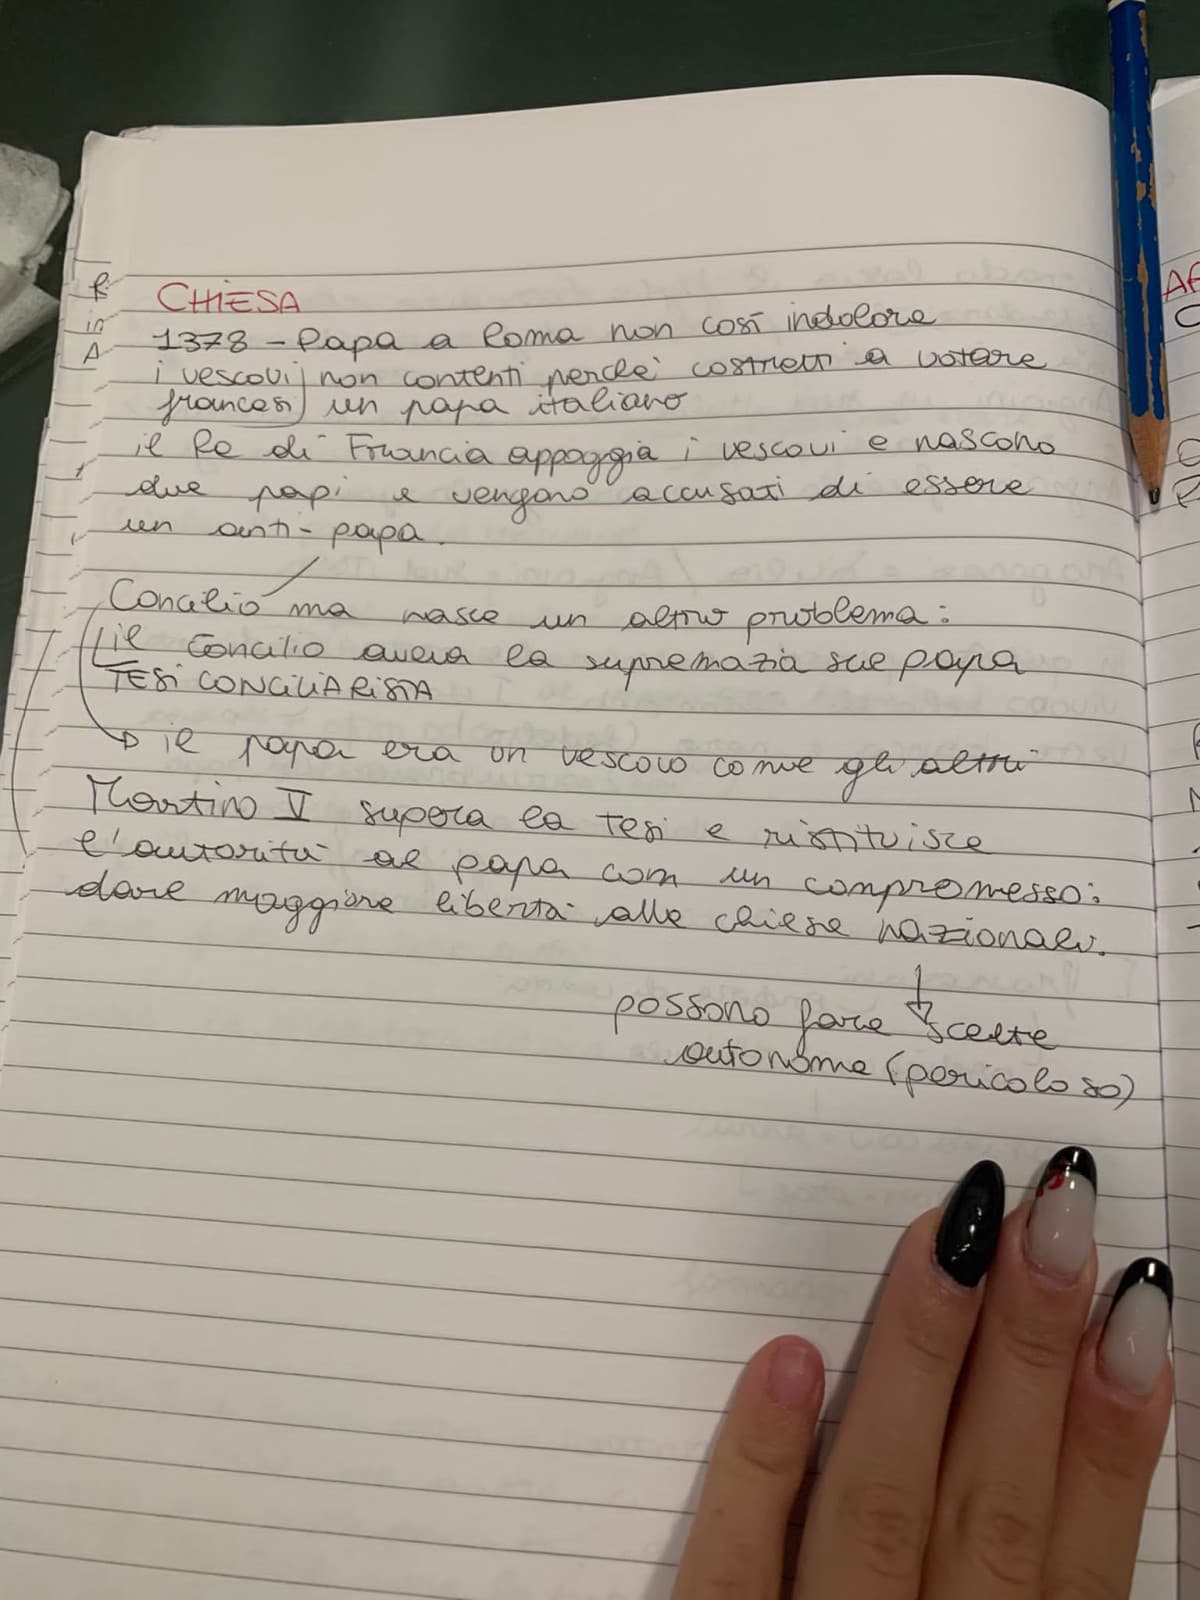 CHIESA
1378 - Papa a Roma non così indolore
i vescovi non contenti perchè costretti a votare
francesi un papa italiano
il Re di Francia appoggia i vescovi e nascono
due papi e vengono accusati di essere
un anti-papa.
Concilio ma nasce un altro problema:
il Concilio aveva la supremazia sul papa
TESI CONCILIARISTA
il papa era un vescovo come gli altri
Martino V supera la tesi e ristituisce
l'autorità al papa com un compromesso:
dare maggiore libertà alle chiese nazionali.
possono fare scelte
autonome (pericoloso)